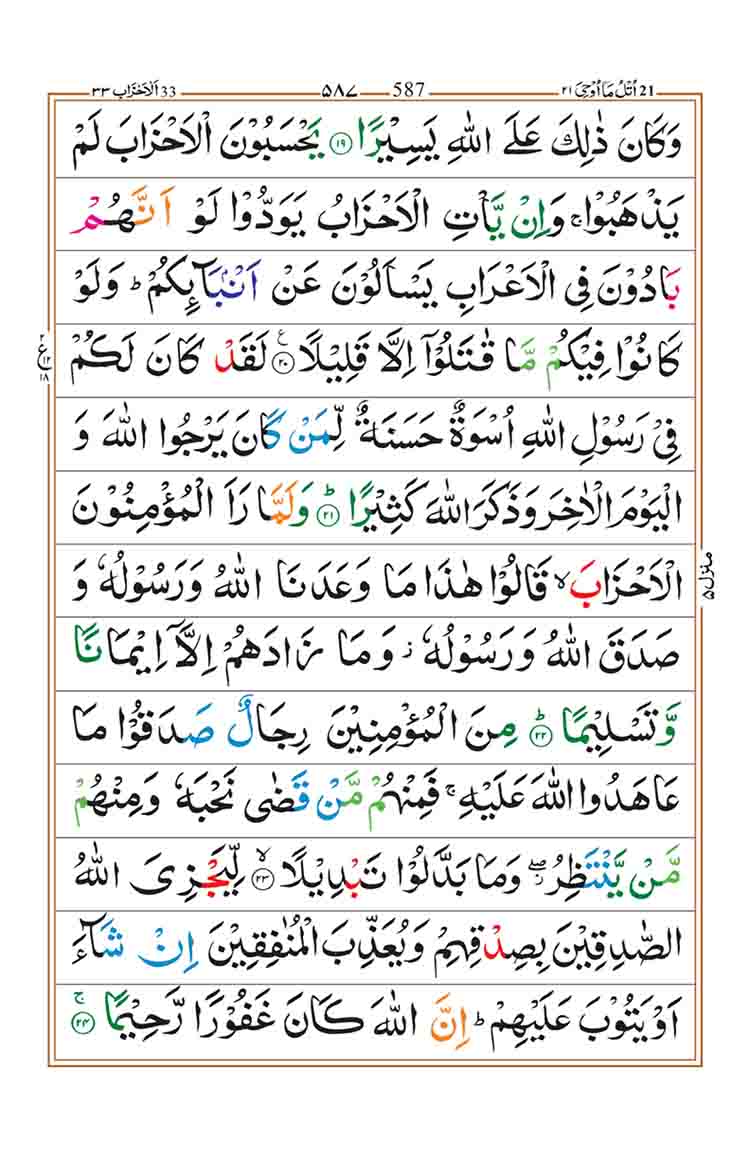 اُتْلُ مَاۤ اُوْحِیَ ٢١ 21 587 ۵۸۷ اَلْاَحْزَاب ٣٣ 33
وَكَانَ ذٰلِكَ عَلَی اللّٰهِ یَسِیْرًا ﴿۱۹﴾ یَحْسَبُوْنَ الْاَحْزَابَ لَمْ
یَذْهَبُوْا ۚ وَاِنْ یَّاْتِ الْاَحْزَابُ یَوَدُّوْا لَوْ اَنَّهُمْ
بَادُوْنَ فِی الْاَعْرَابِ یَسْاَلُوْنَ عَنْ اَنْۢبَآىِٕكُمْ ؕ وَلَوْ
كَانُوْا فِیْكُمْ مَّا قٰتَلُوْۤا اِلَّا قَلِیْلًا ﴿۲۰﴾ ع لَقَدْ كَانَ لَكُمْ
فِیْ رَسُوْلِ اللّٰهِ اُسْوَةٌ حَسَنَةٌ لِّمَنْ كَانَ یَرْجُوا اللّٰهَ وَ
الْیَوْمَ الْاٰخِرَ وَذَكَرَ اللّٰهَ كَثِیْرًا ﴿۲۱﴾ ؕ وَلَمَّا رَاَ الْمُؤْمِنُوْنَ
الْاَحْزَابَ ۙ قَالُوْا هٰذَا مَا وَعَدَنَا اللّٰهُ وَرَسُوْلُهٗ وَ
صَدَقَ اللّٰهُ وَرَسُوْلُهٗ ؗ وَمَا زَادَهُمْ اِلَّاۤ اِیْمَانًا
وَّتَسْلِیْمًا ﴿۲۲﴾ ؕ مِنَ الْمُؤْمِنِیْنَ رِجَالٌ صَدَقُوْا مَا
عَاهَدُوا اللّٰهَ عَلَیْهِ ۚ فَمِنْهُمْ مَّنْ قَضٰی نَحْبَهٗ وَمِنْهُمْ
مَّنْ یَّنْتَظِرُ ۖؗ وَمَا بَدَّلُوْا تَبْدِیْلًا ﴿۲۳﴾ ۙ لِّیَجْزِیَ اللّٰهُ
الصّٰدِقِیْنَ بِصِدْقِهِمْ وَیُعَذِّبَ الْمُنٰفِقِیْنَ اِنْ شَآءَ
اَوْ یَتُوْبَ عَلَیْهِمْ ؕ اِنَّ اللّٰهَ كَانَ غَفُوْرًا رَّحِیْمًا ﴿۲۴﴾ ۚ
٢ ع ١٢ ١٨
منزل ۵